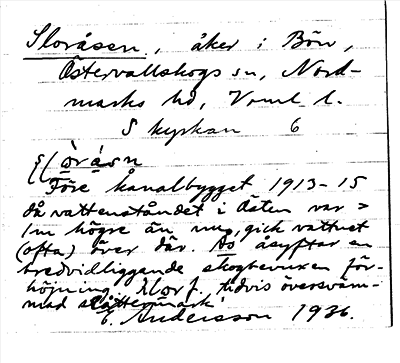 Sloråsen, åker i Bön,
Östervallskogs sn, Nord-
marks hd, Vrml. l.
S kyrkan 6
Före kanalbygget 1913-15
då vattenståndet i Östen var >
1m högre än nu, gick vattnet
(ofta) över där. Ås åsyftar en
bredvidliggande skogbevuxen för-
höjning. Slor f. tidvis översväm-
mad slåttermark
E. Andersson 1936.